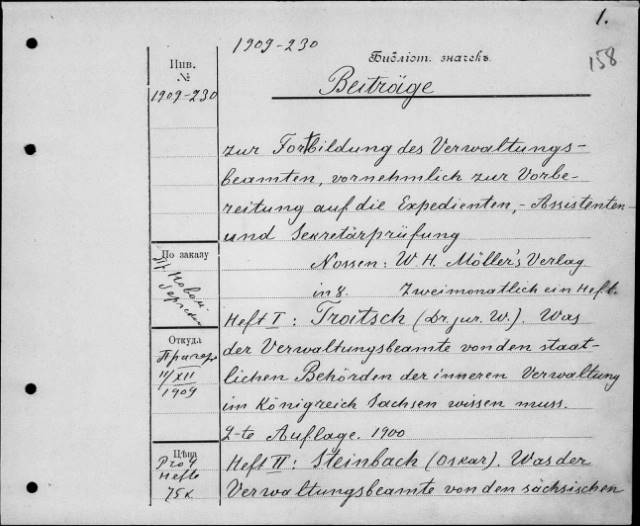 1.
1909-230
158
Инв.
№
1909-230
Библіот. значекъ
Beiträge
zur Fortbildung des Verwaltungs-
beamten, vornehmlich zur Vorbe-
reitung auf die Expedienten,- Assistenten-
und Sekretärprüfung
Nossen: W. H. Möller's Verlag
in 8. Zweimonatlich ein Heft.
По заказу
Heft I: Troitsch (Dr. jur. W.). Was
der Verwaltungsbeamte von den staat-
lichen Behörden der inneren Verwaltung
im Königreich Sachsen wissen muss.
2-te Auflage. 1900
Откуда
11/XII
1909
Heft II: Steinbach (Oskar). Was der
Verwaltungsbeamte von den sächsischen
Цѣна
Pro 4
Hefte
75 к.